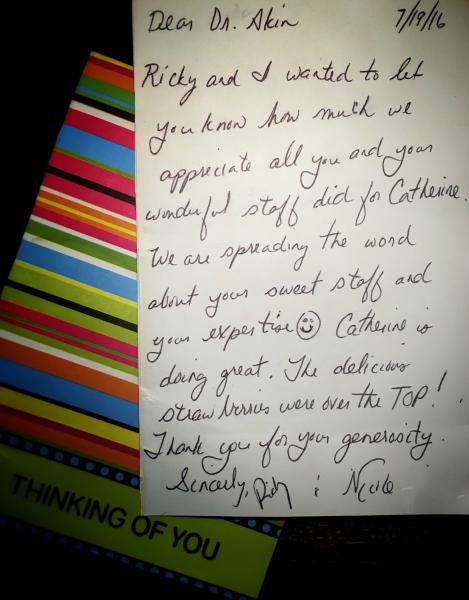 Dear Dr. Akin 7/19/16
Ricky and I wanted to let
you know how much we
appreciate all you and your
wonderful staff did for Catherine.
We are spreading the word
about your sweet staff and
your expertise☺ Catherine is
doing great. The delicious
strawberries were over the TOP!
Thank you for your generosity.
Sincerely, Ricky & Nicole
THINKING OF YOU